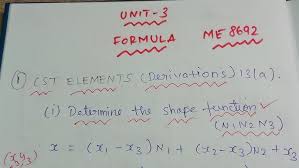 UNIT-3
FORMULA ME8692
① CST ELEMENTS (Derivations) 13(a).
(i) Determine the shape function
(N1 N2 N3)
x = (x1 - x3) N1 + (x2 - x3) N2 + x3